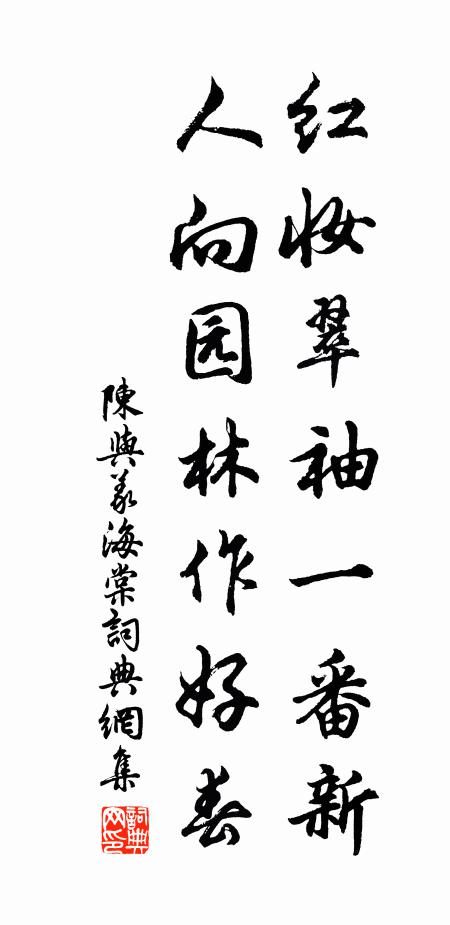 红妆翠袖一番新
人向园林作好春
陳與義海棠詞典網集
詞典网印